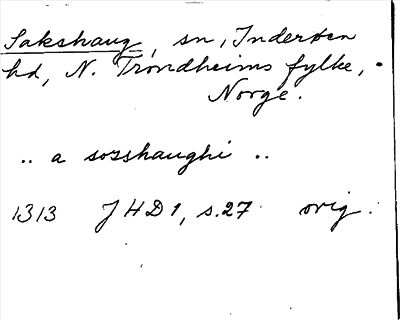 Sakshaug, sn, Inderøen
hd, N. Trondheims fylke,
Norge.
.. a sozshaughi ..
1313 JHD 1, s.27 orig.